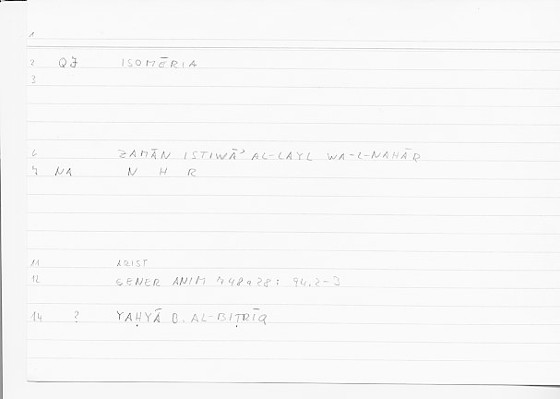 1
2 QJ ISOMĒRIA
3
6 ZAMĀN ISTIWĀʾ AL-LAYL WA-L-NAHĀR
7 NA N H R
11 ARIST
12 GENER ANIM 748a28: 94,2-3
14 ? YAḤYĀ B. AL-BIṬRĪQ